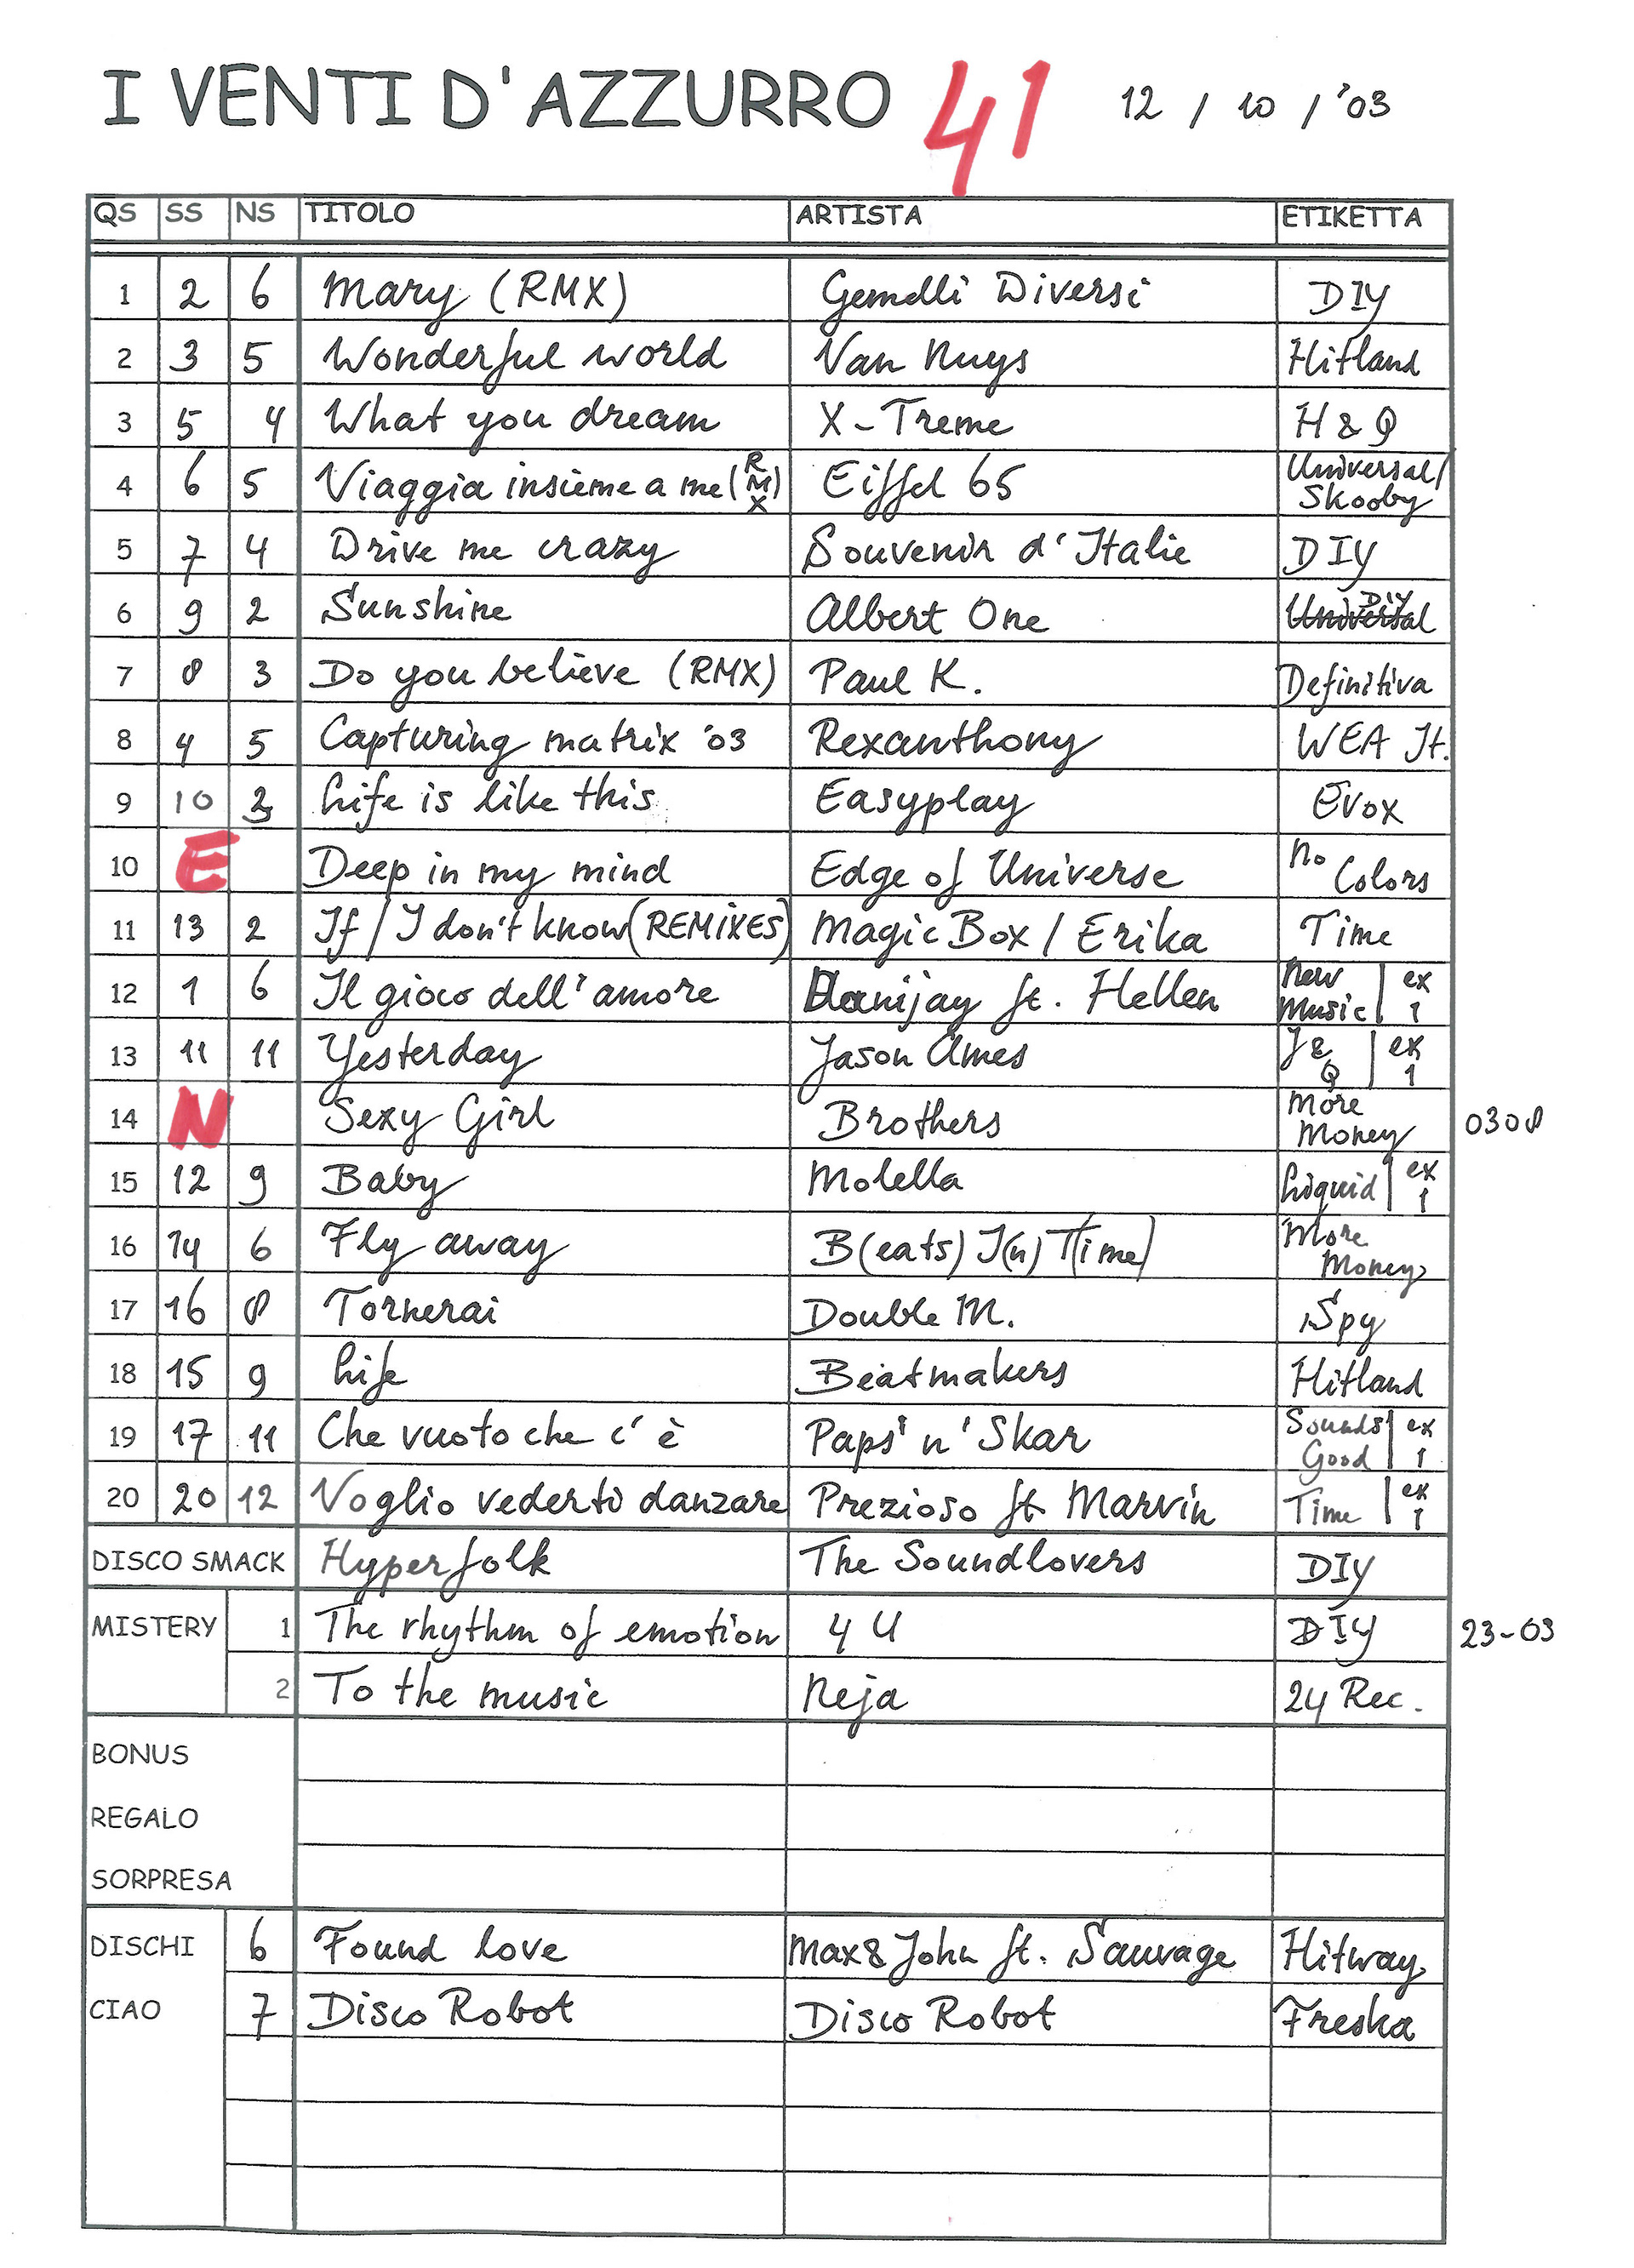 I VENTI D'AZZURRO 41 12 / 10 / '03
QS SS NS TITOLO ARTISTA ETIKETTA
1 2 6 Mary (RMX) Gemelli Diversi DIY
2 3 5 Wonderful world Van Nuys Hitland
3 5 4 What you dream X-Treme H & Q
4 6 5 Viaggia insieme a me (RMX) Eiffel 65 Universal/ Skooby
5 7 4 Drive me crazy Souvenir d'Italie DIY
6 9 2 Sunshine Albert One Universal DIY
7 8 3 Do you believe (RMX) Paul K. Definitiva
8 4 5 Capturing matrix '03 Rexanthony WEA It.
9 10 3 Life is like this Easyplay Evox
10 E Deep in my mind Edge of Universe No Colors
11 13 2 If / I don't know (REMIXES) Magic Box / Erika Time
12 1 6 Il gioco dell'amore Danijay ft. Hellen New Music ex 1
13 11 11 Yesterday Jason Ames J & Q ex 1
14 N Sexy Girl Brothers More Money 0308
15 12 9 Baby Molella Liquid ex 1
16 14 6 Fly away B(eats) I(n) T(ime) More Money
17 16 8 Tornerai Double M. Spy
18 15 9 Life Beatmakers Hitland
19 17 11 Che vuoto che c'è Paps'n'Skar Sounds Good ex 1
20 20 12 Voglio vederti danzare Prezioso ft Marvin Time ex 1
DISCO SMACK Hyperfolk The Soundlovers DIY
MISTERY 1 The rhythm of emotion 4 U DIY 23-03
2 To the music Neja 24 Rec.
BONUS
REGALO
SORPRESA
DISCHI 6 Found love Max & John ft. Sauvage Hitway
CIAO 7 Disco Robot Disco Robot Freska